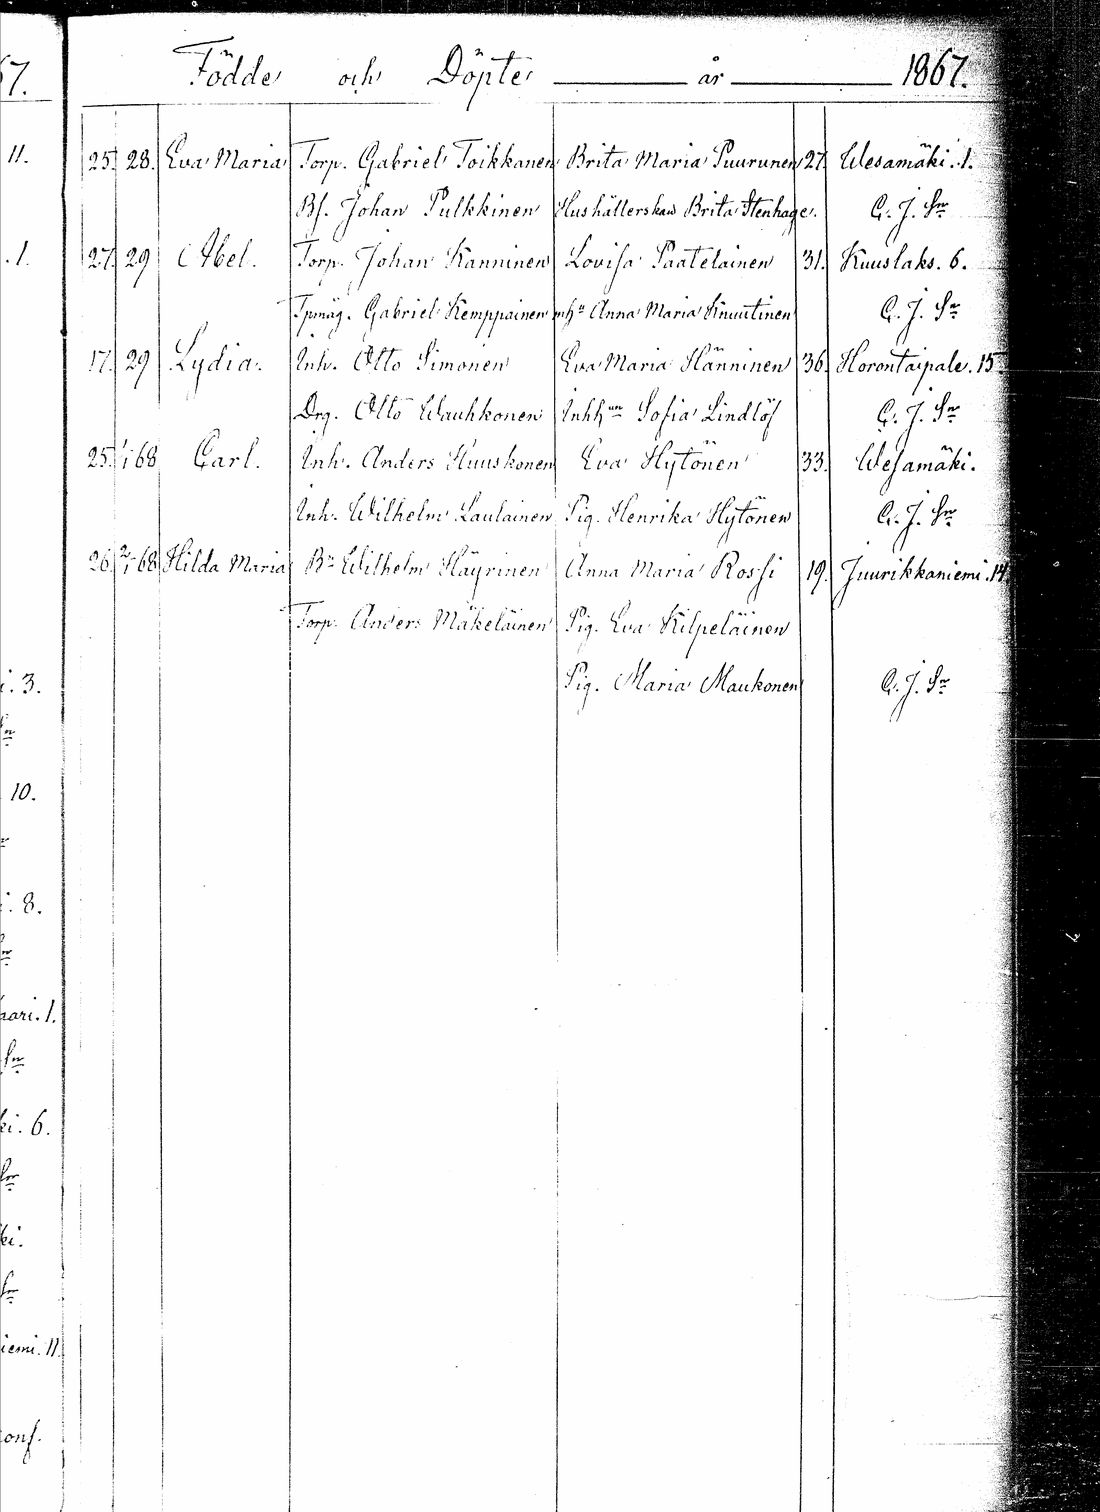 67. Födde och Döpte år 1867.
11. 25. 28. Eva Maria Torp. Gabriel Toikkanen Brita Maria Puurunen 27. Wesamäki. 1.
Bf. Johan Pulkkinen Hushållerskan Brita Stenhage. C. J. Sn
.1. 27. 29 Abel. Torp. Johan Kanninen Lovisa Paatelainen 31. Kuuslaks. 6.
Tpmåg. Gabriel Kemppainen mhu Anna Maria Knuutinen C. J. Sn
17. 29 Lydia. Inh. Otto Simonen Eva Maria Hänninen 36. Horontaipale. 15
Drg. Otto Wauhkonen Inhhun Sofia Lindlöf C. J. Sn
25. 1/1 68 Carl. Inh. Anders Huuskonen Eva Hytönen 33. Wesamäki.
Inh. Wilhelm Laulainen Pig. Henrika Hytönen C. J. Sn
26. 2/1-68 Hilda Maria Bn Wilhelm Häyrinen Anna Maria Rossi 19. Juurikkaniemi. 14
Torp. Anders Mäkeläinen Pig. Eva Kilpeläinen
i. 3. Pig. Maria Maukonen C. J. Sn
Sn
10.
i. 8.
Sn
aari. 1.
Sn
ki. 6.
Sn
ki.
Sn
iemi. 11.
onf.